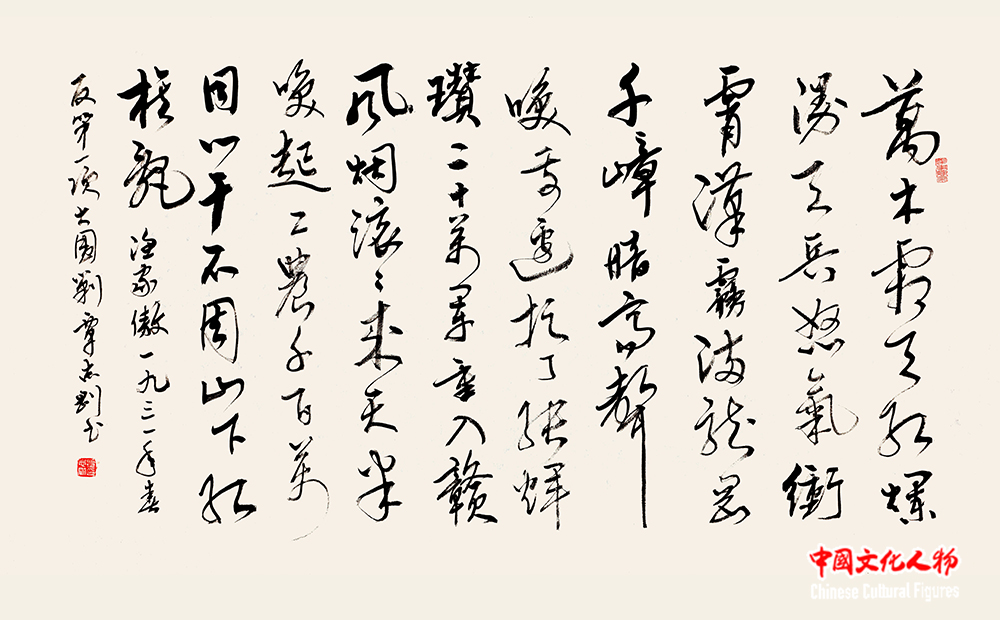 萬木霜天红爛
漫天兵怒氣衝
霄漢霧满龙岡
千嶂暗齐聲
唤前邊捉了張輝
瓚二十萬軍重入赣
風烟滚〻来天半
唤起工農千百萬
同心干不周山下红
旗亂 渔家傲一九三一年春
反第一次大圍剿 覃志刚书
中國文化人物
Chinese Cultural Figures